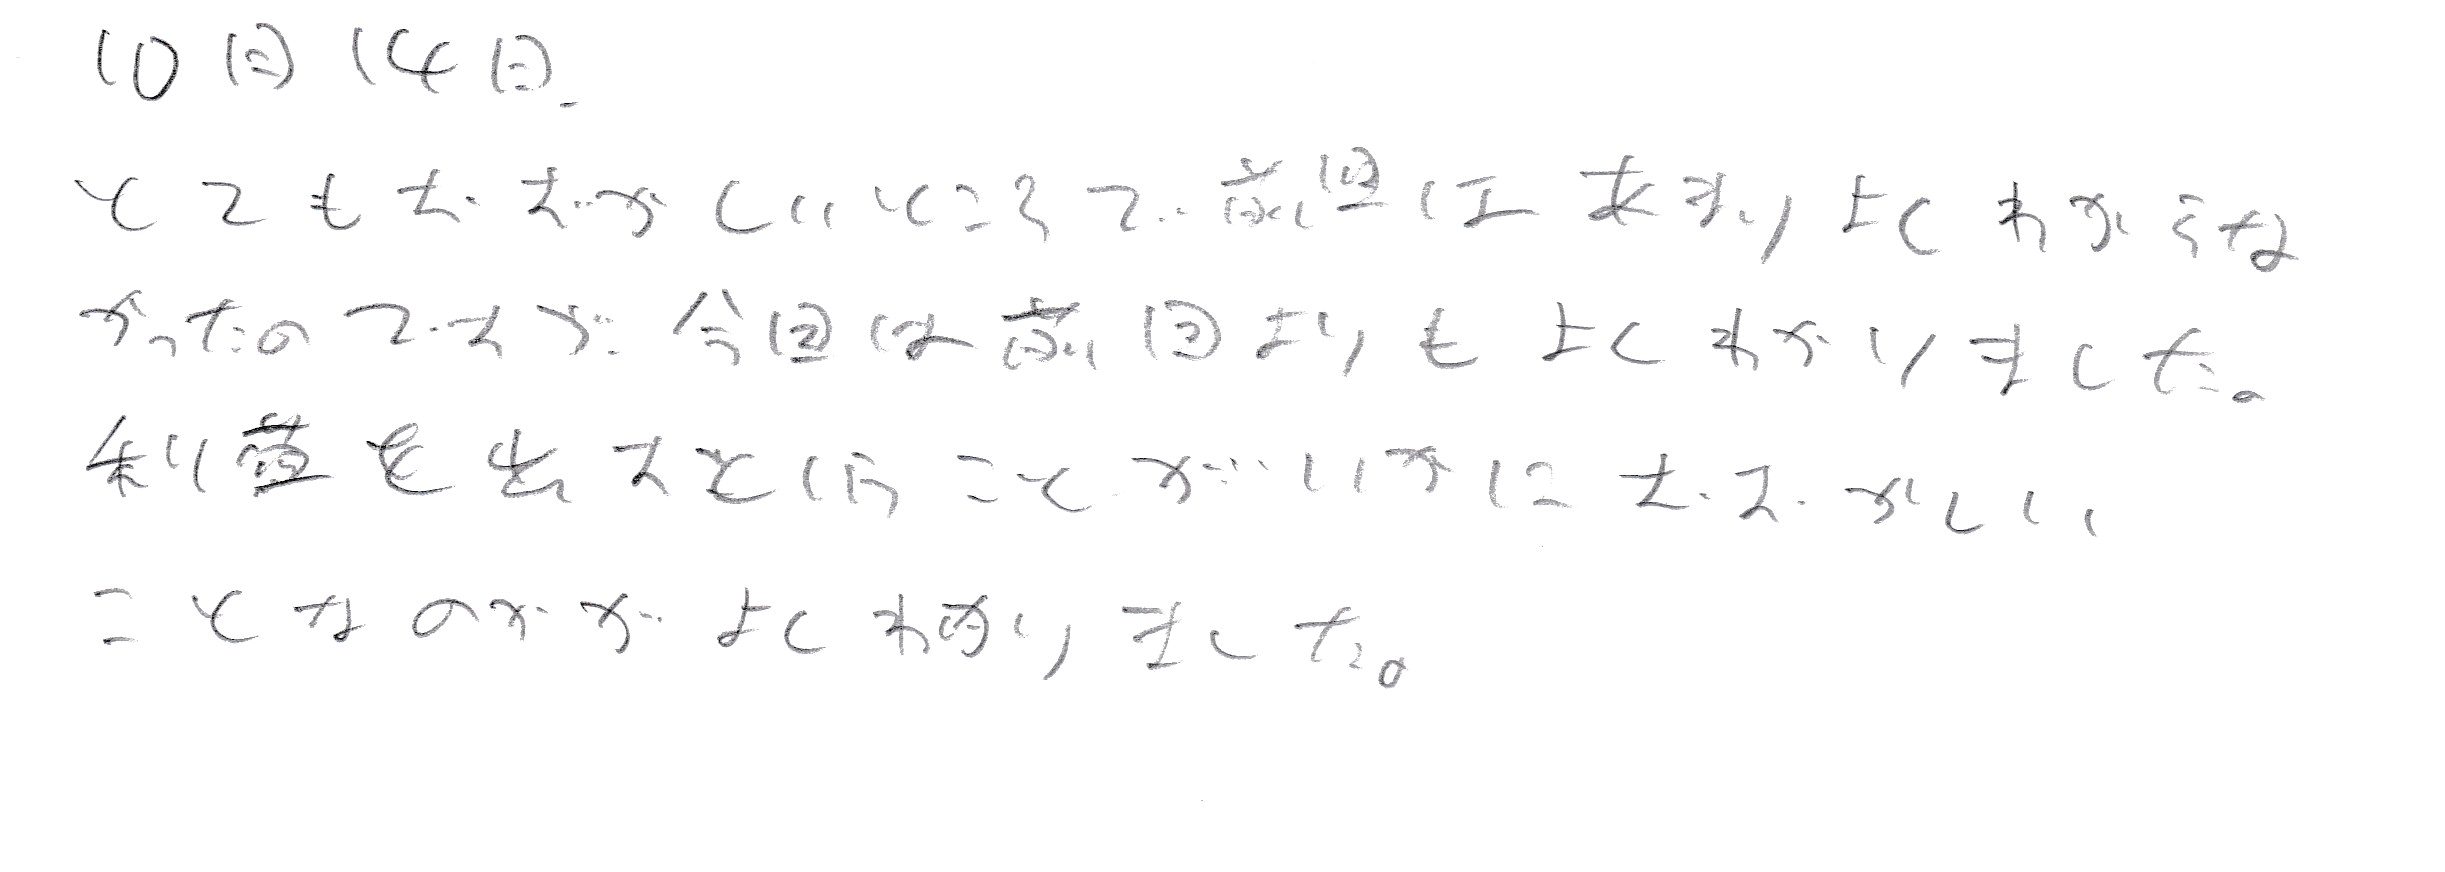 10日14日
とてもむずがしいところで前回はあまりよくわからな
かったのですが今回は前回よりもよくわかりました。
利益を出すということがいかにむずかしい
ことなのかがよくわかりました。